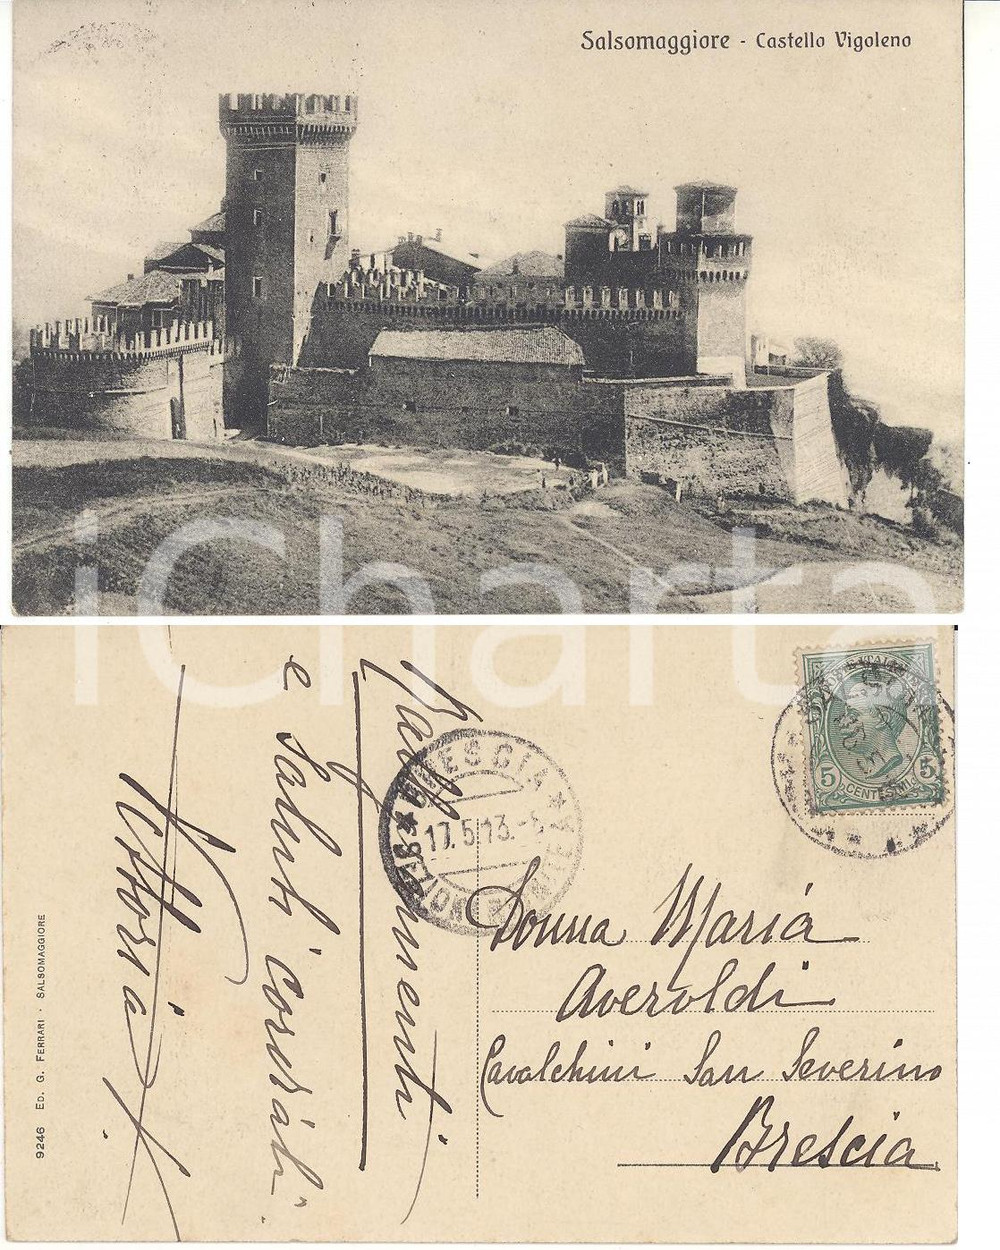 Salsomaggiore - Castello Vigoleno
iCharta
Rallegramenti
e saluti cordiali
Vittoria
9246 ED. G. FERRARI - SALSOMAGGIORE
BRESCIA
17.5.13.
5 CENTESIMI 5
Donna Maria
Averoldi
Cavalchini San Severino
Brescia